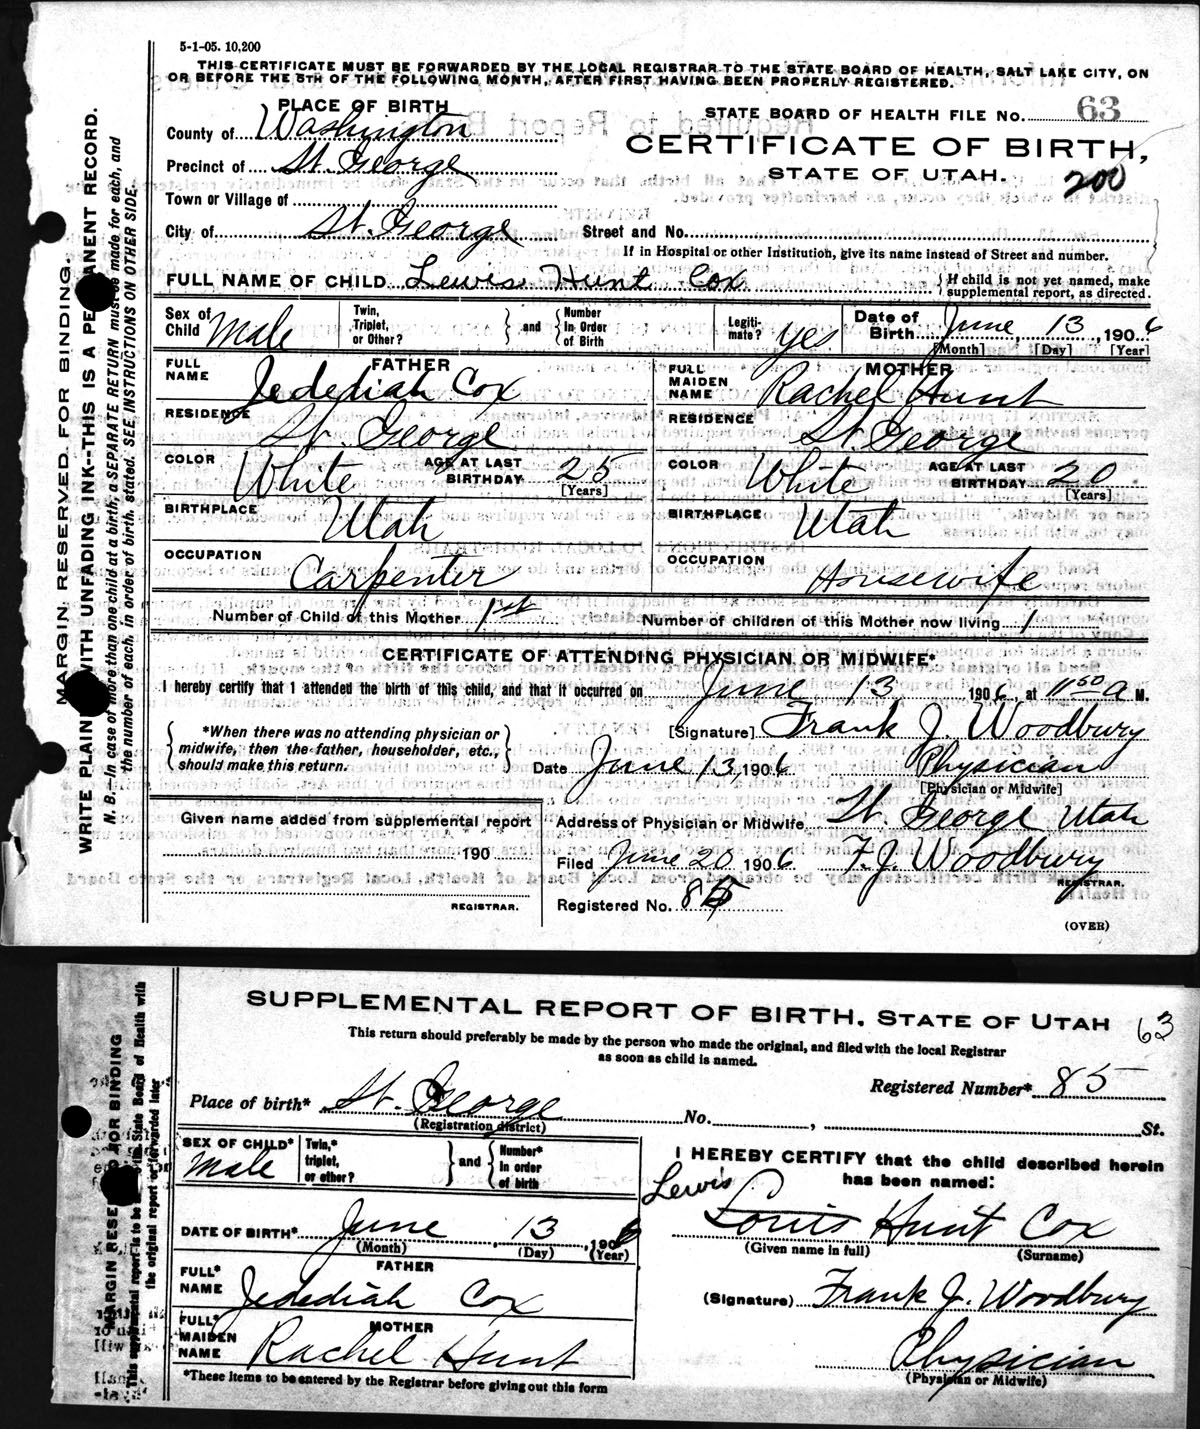 5-1-05. 10,200
THIS CERTIFICATE MUST BE FORWARDED BY THE LOCAL REGISTRAR TO THE STATE BOARD OF HEALTH, SALT LAKE CITY, ON
OR BEFORE THE 5TH OF THE FOLLOWING MONTH, AFTER FIRST HAVING BEEN PROPERLY REGISTERED.
MARGIN RESERVED FOR BINDING.
WRITE PLAINLY WITH UNFADING INK--THIS IS A PERMANENT RECORD.
N. B.--In case of more than one child at a birth, a SEPARATE RETURN must be made for each, and
the number of each, in order of birth, stated. SEE INSTRUCTIONS ON OTHER SIDE.
PLACE OF BIRTH
STATE BOARD OF HEALTH FILE NO. 63
County of Washington
CERTIFICATE OF BIRTH,
Precinct of St. George
STATE OF UTAH.
200
Town or Village of
City of St. George Street and No.
If in Hospital or other Institution, give its name instead of Street and number.
FULL NAME OF CHILD Lewis Hunt Cox { If child is not yet named, make supplemental report, as directed.
Sex of Child Male Twin, Triplet, or Other? } and { Number In Order of Birth Legiti-mate? yes Date of Birth June 13, 1906
[Month] [Day] [Year]
FATHER MOTHER
FULL NAME Jedediah Cox FULL MAIDEN NAME Rachel Hunt
RESIDENCE St George RESIDENCE St George
COLOR White AGE AT LAST BIRTHDAY 25 [Years] COLOR White AGE AT LAST BIRTHDAY 20 [Years]
BIRTHPLACE Utah BIRTHPLACE Utah
OCCUPATION Carpenter OCCUPATION Housewife
Number of Child of this Mother 1st Number of children of this Mother now living 1
CERTIFICATE OF ATTENDING PHYSICIAN OR MIDWIFE*
I hereby certify that I attended the birth of this child, and that it occurred on June 13 1906, at 11 50 a M.
{ *When there was no attending physician or midwife, then the father, householder, etc., should make this return. }
[Signature] Frank J. Woodbury
Date June 13, 1906 Physician
[Physician or Midwife]
Given name added from supplemental report
Address of Physician or Midwife St. George Utah
190
Filed June 20 1906 F. J. Woodbury
REGISTRAR.
REGISTRAR.
Registered No. 85
(OVER)
SUPPLEMENTAL REPORT OF BIRTH. STATE OF UTAH 63
This return should preferably be made by the person who made the original, and filed with the local Registrar
as soon as child is named.
MARGIN RESERVED FOR BINDING
Registered Number* 85
Place of birth* St. George No. , St.
(Registration district)
SEX OF CHILD* Male Twin,* triplet, or other? } and { Number* In order of birth
I HEREBY CERTIFY that the child described herein
has been named:
Lewis
Louis Hunt Cox
(Given name in full) (Surname)
DATE OF BIRTH* June 13, 1906
(Month) (Day) (Year)
FATHER
FULL* NAME Jedediah Cox
(Signature) Frank J. Woodbury
MOTHER
FULL* MAIDEN NAME Rachel Hunt
Physician
(Physician or Midwife)
*These items to be entered by the Registrar before giving out this form